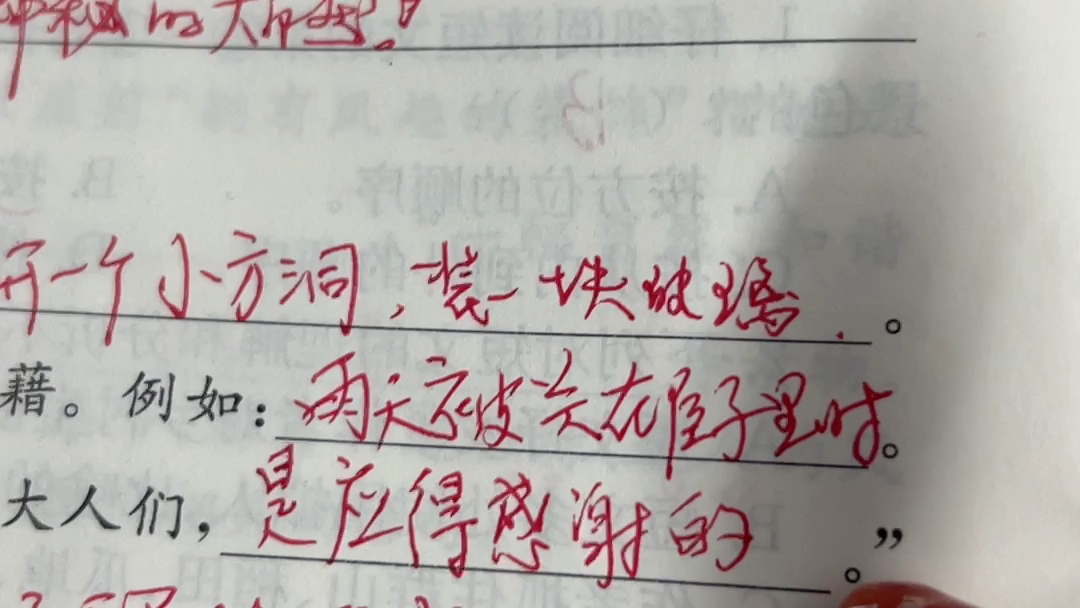 的大
开一个小方洞，装一块玻璃。
藉。例如：雨天被关在屋子里时。
大人们，是应得感谢的。”